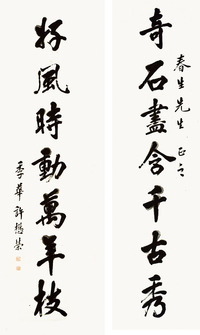 奇石盡含千古秀
春生先生正之
好風時動萬年枝
季華許懋榮